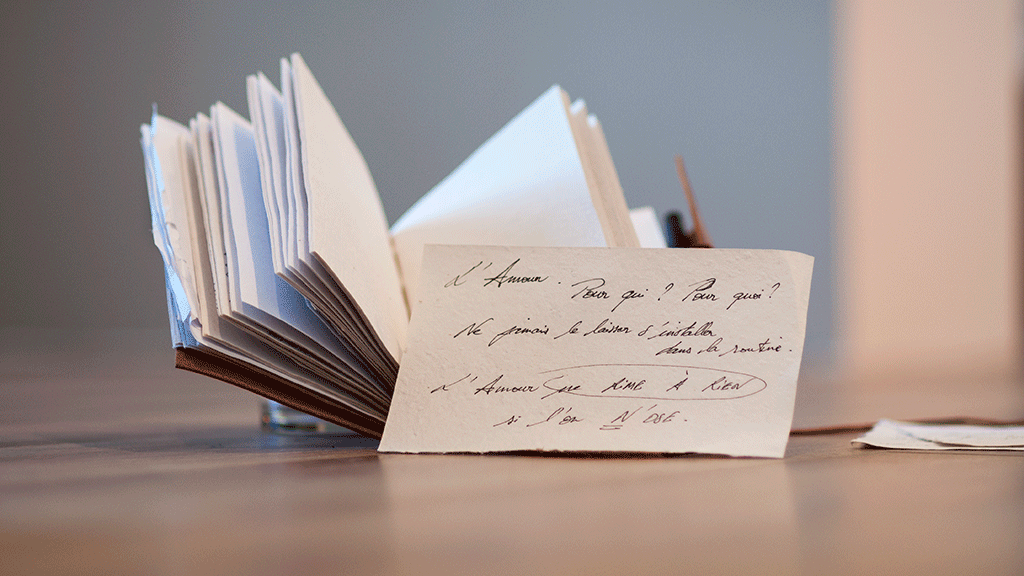 L'Amour. Pour qui ? Pour quoi ?
Ne jamais le laisser s'installer
dans la routine.
L'Amour que RIME À RIEN
si l'on N'OSE.